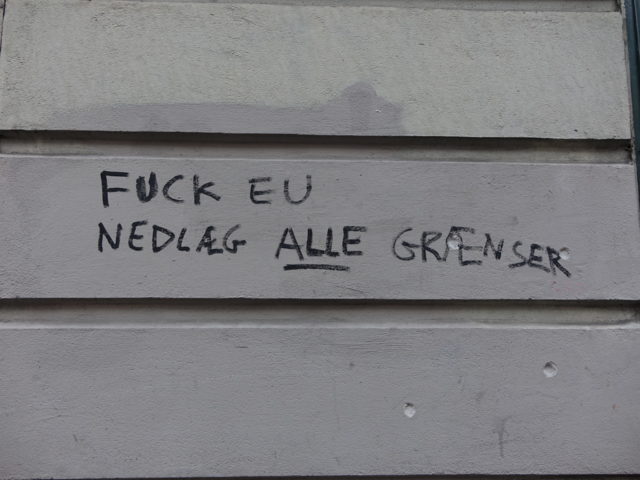 FUCK EU
NEDLÆG ALLE GRÆNSER